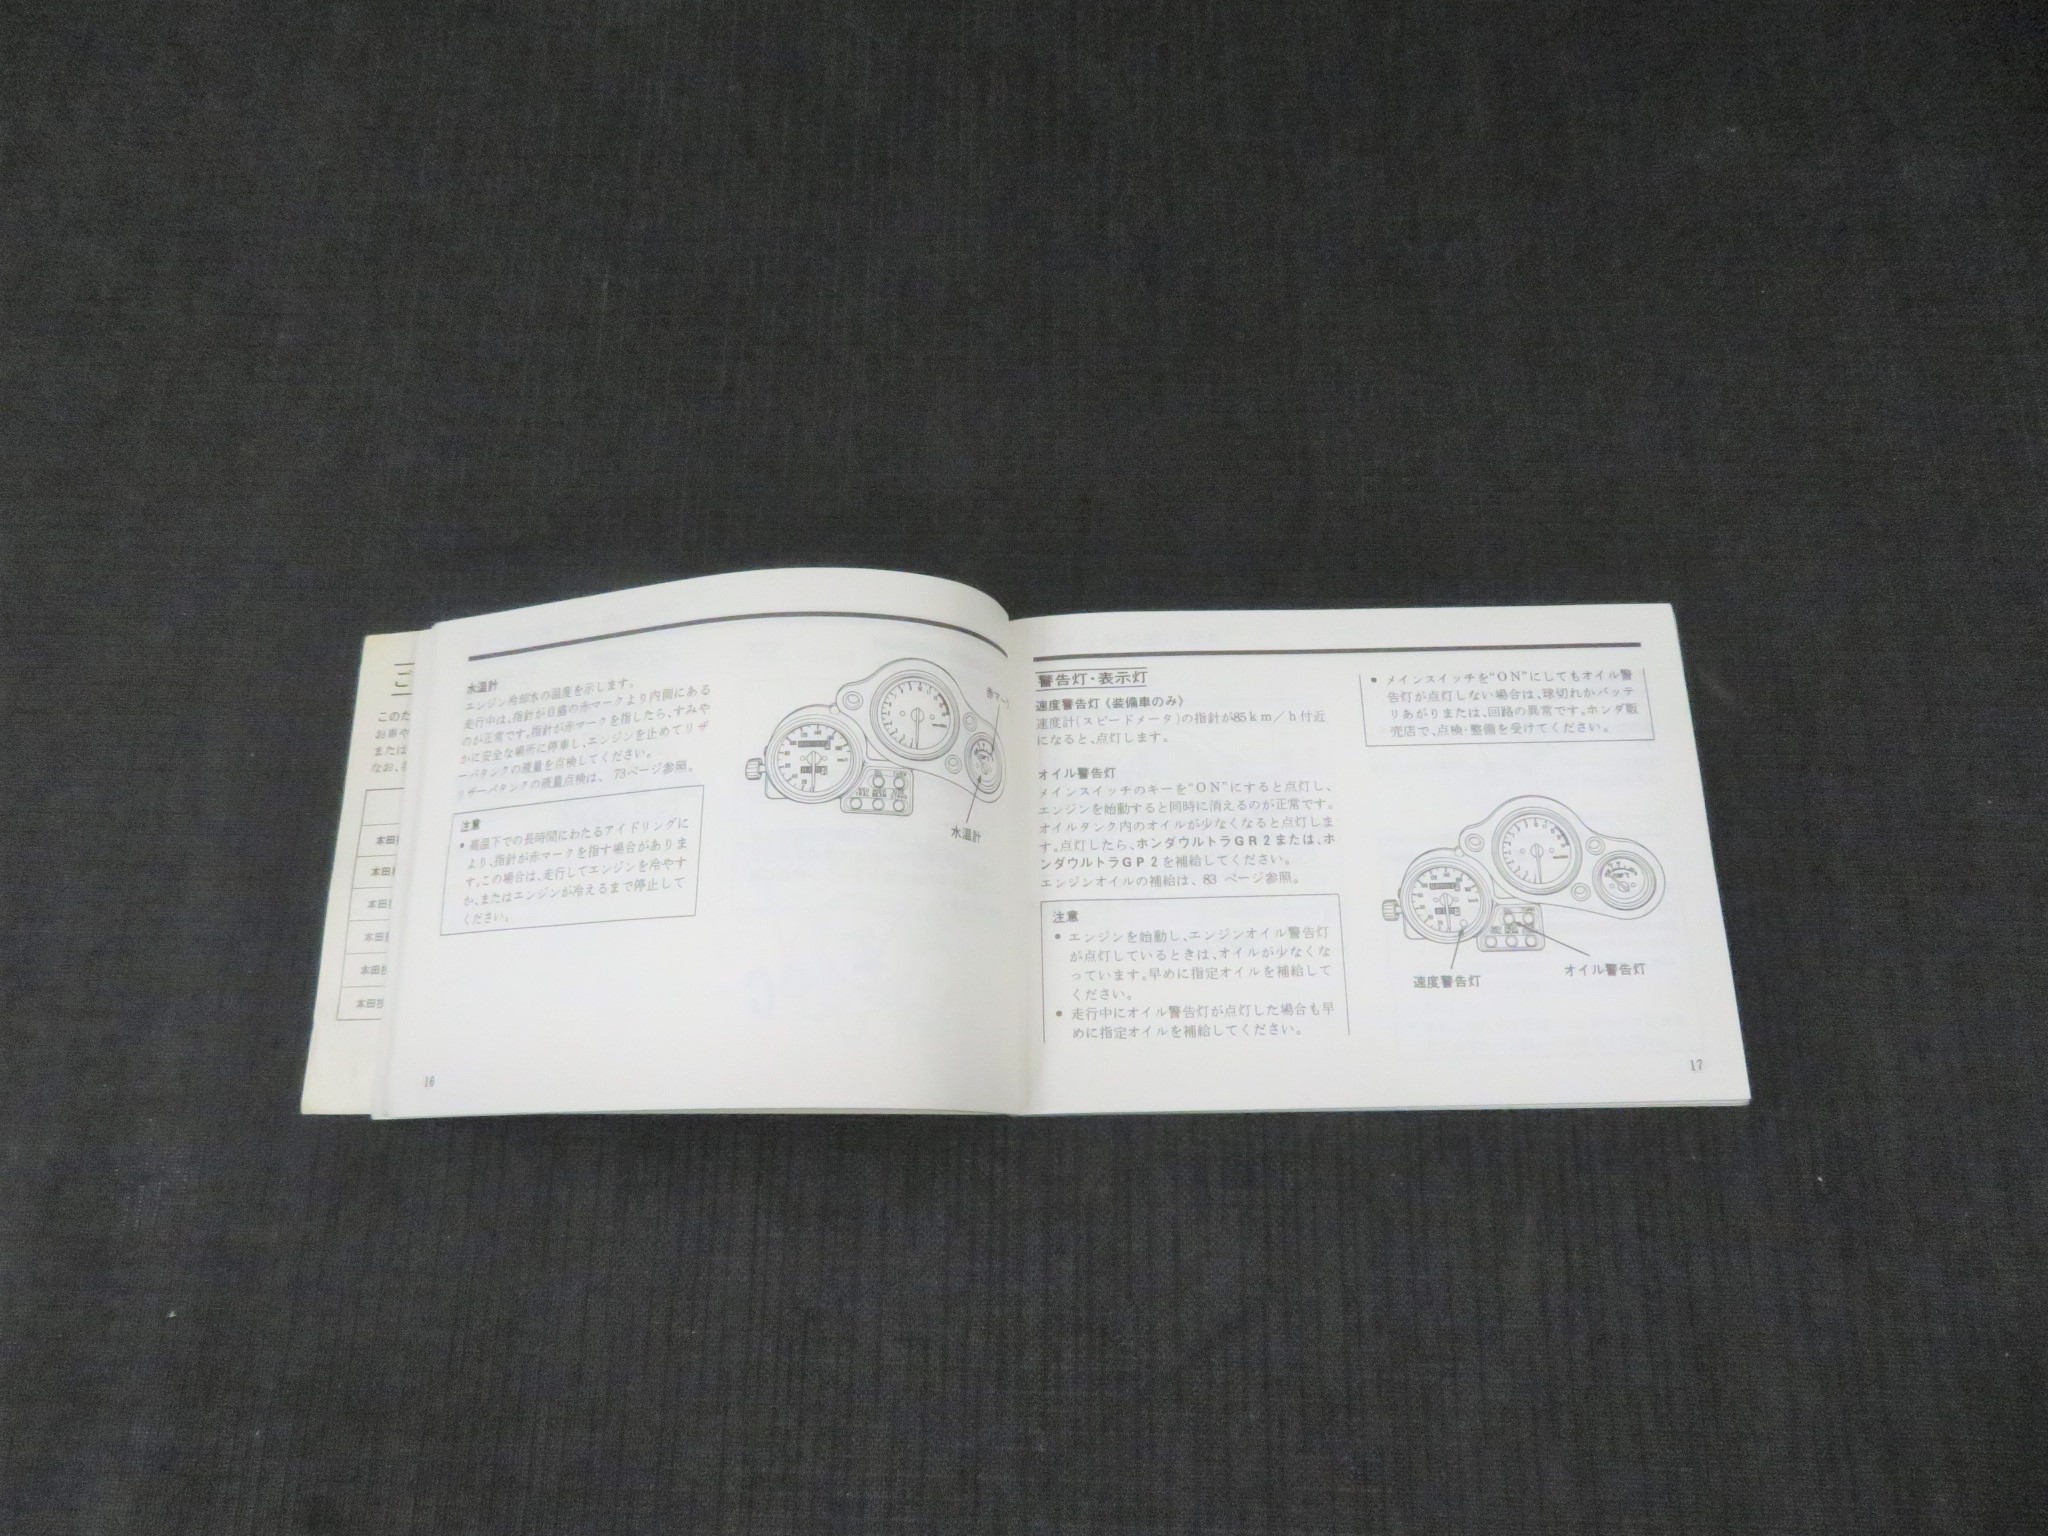 ご
このた
お車や
または
なお、
本田技
本田技
本田技
本田技
本田技
本田技
水温計
エンジン冷却水の温度を示します。
走行中は、指針が目盛の赤マークより内側にある
のが正常です。指針が赤マークを指したら、すみや
かに安全な場所に停車し、エンジンを止めてリザ
ーバタンクの液量を点検してください。
リザーバタンクの液量点検は、73ページ参照。
注意
● 高温下での長時間にわたるアイドリングに
より、指針が赤マークを指す場合がありま
す。この場合は、走行してエンジンを冷やす
か、またはエンジンが冷えるまで停止して
ください。
赤マーク
水温計
16
警告灯・表示灯
速度警告灯(装備車のみ)
速度計(スピードメータ)の指針が85km/h付近
になると、点灯します。
オイル警告灯
メインスイッチのキーを“ON”にすると点灯し、
エンジンを始動すると同時に消えるのが正常です。
オイルタンク内のオイルが少なくなると点灯しま
す。点灯したら、ホンダウルトラGR2または、ホ
ンダウルトラGP2を補給してください。
エンジンオイルの補給は、83 ページ参照。
注意
● エンジンを始動し、エンジンオイル警告灯
が点灯しているときは、オイルが少なくな
っています。早めに指定オイルを補給して
ください。
● 走行中にオイル警告灯が点灯した場合も早
めに指定オイルを補給してください。
● メインスイッチを“ON”にしてもオイル警
告灯が点灯しない場合は、球切れかバッテ
リあがりまたは、回路の異常です。ホンダ販
売店で、点検・整備を受けてください。
速度警告灯
オイル警告灯
17